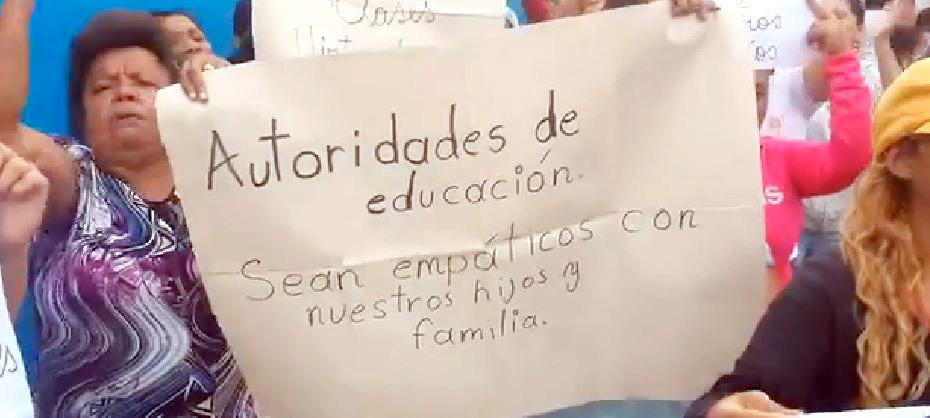 Clases
Autoridades de
educación.
Sean empáticos con
nuestros hijos y
familia.